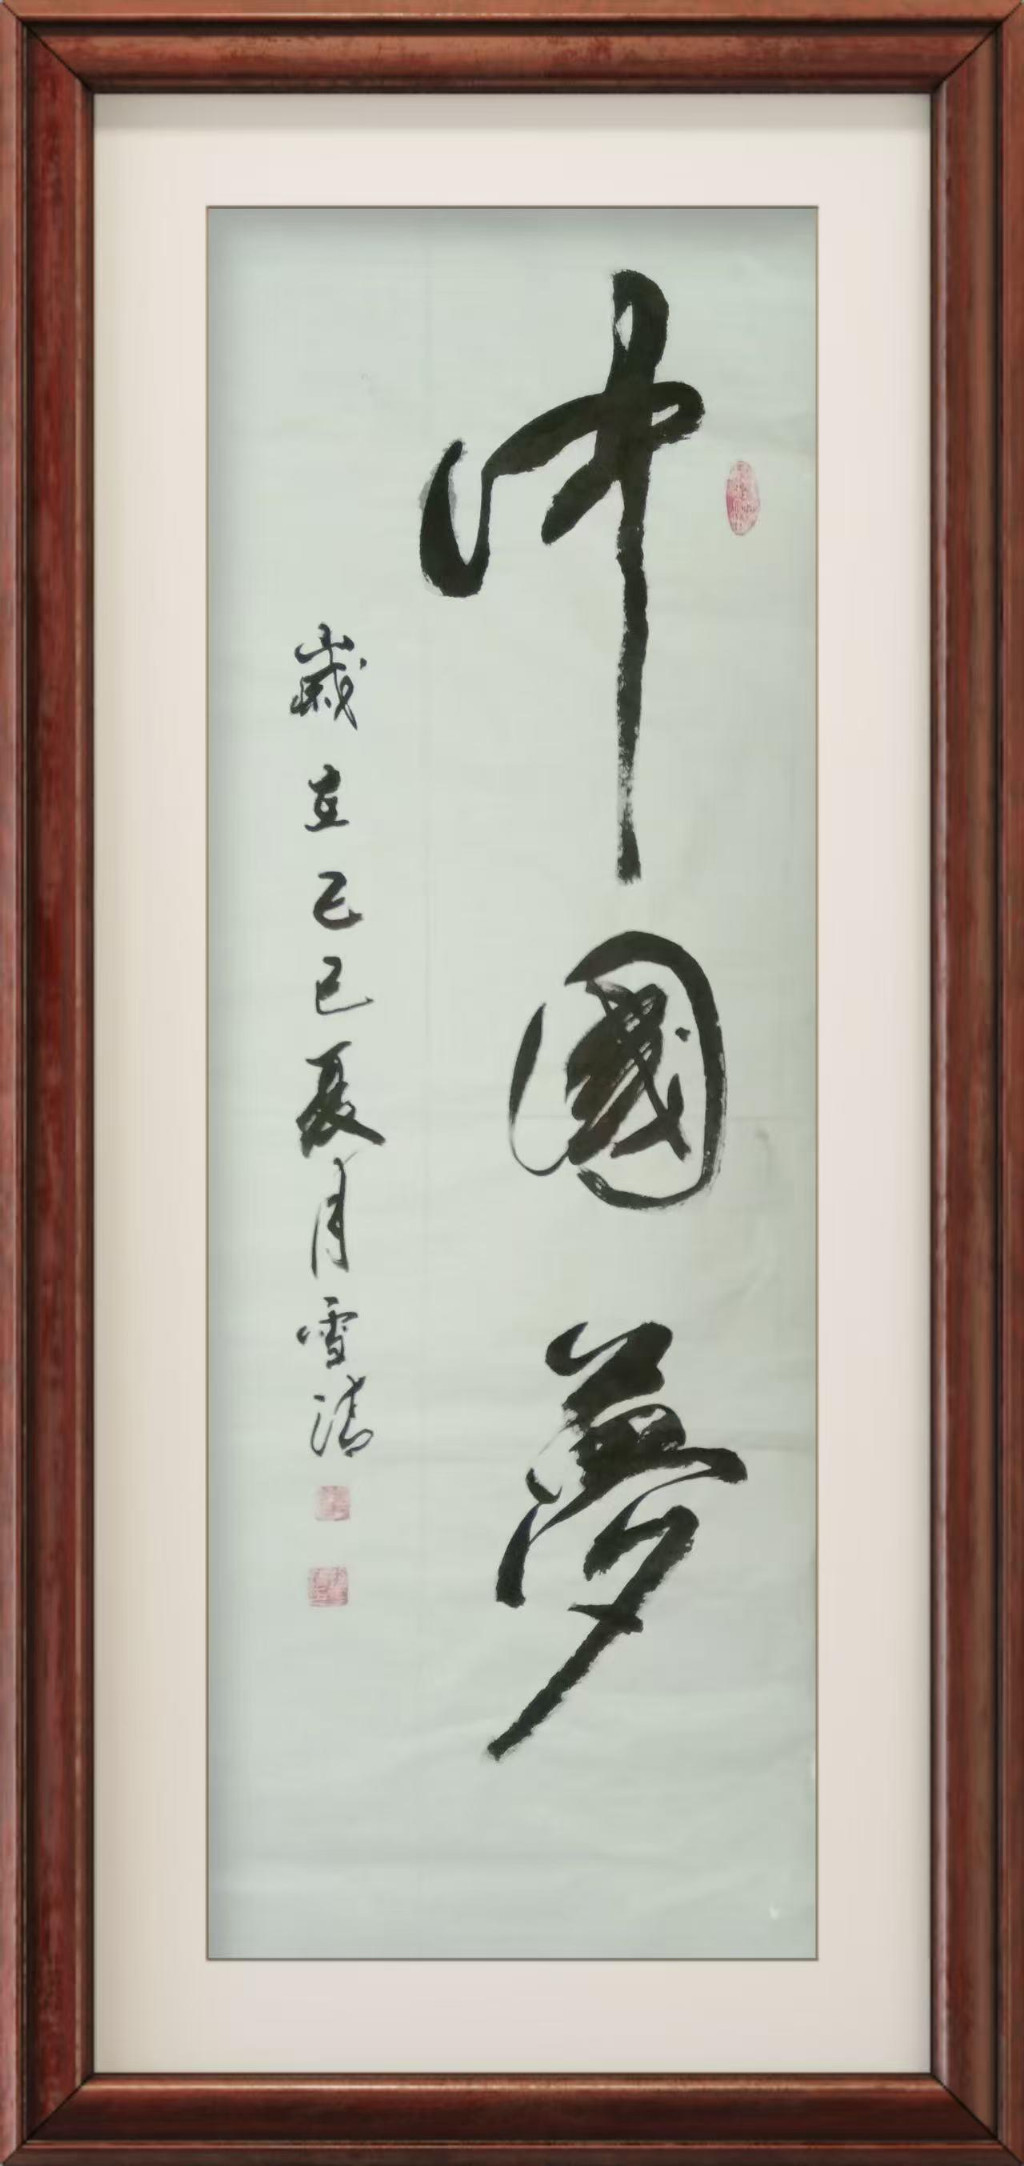 中國夢
歲在己巳夏月雪濤